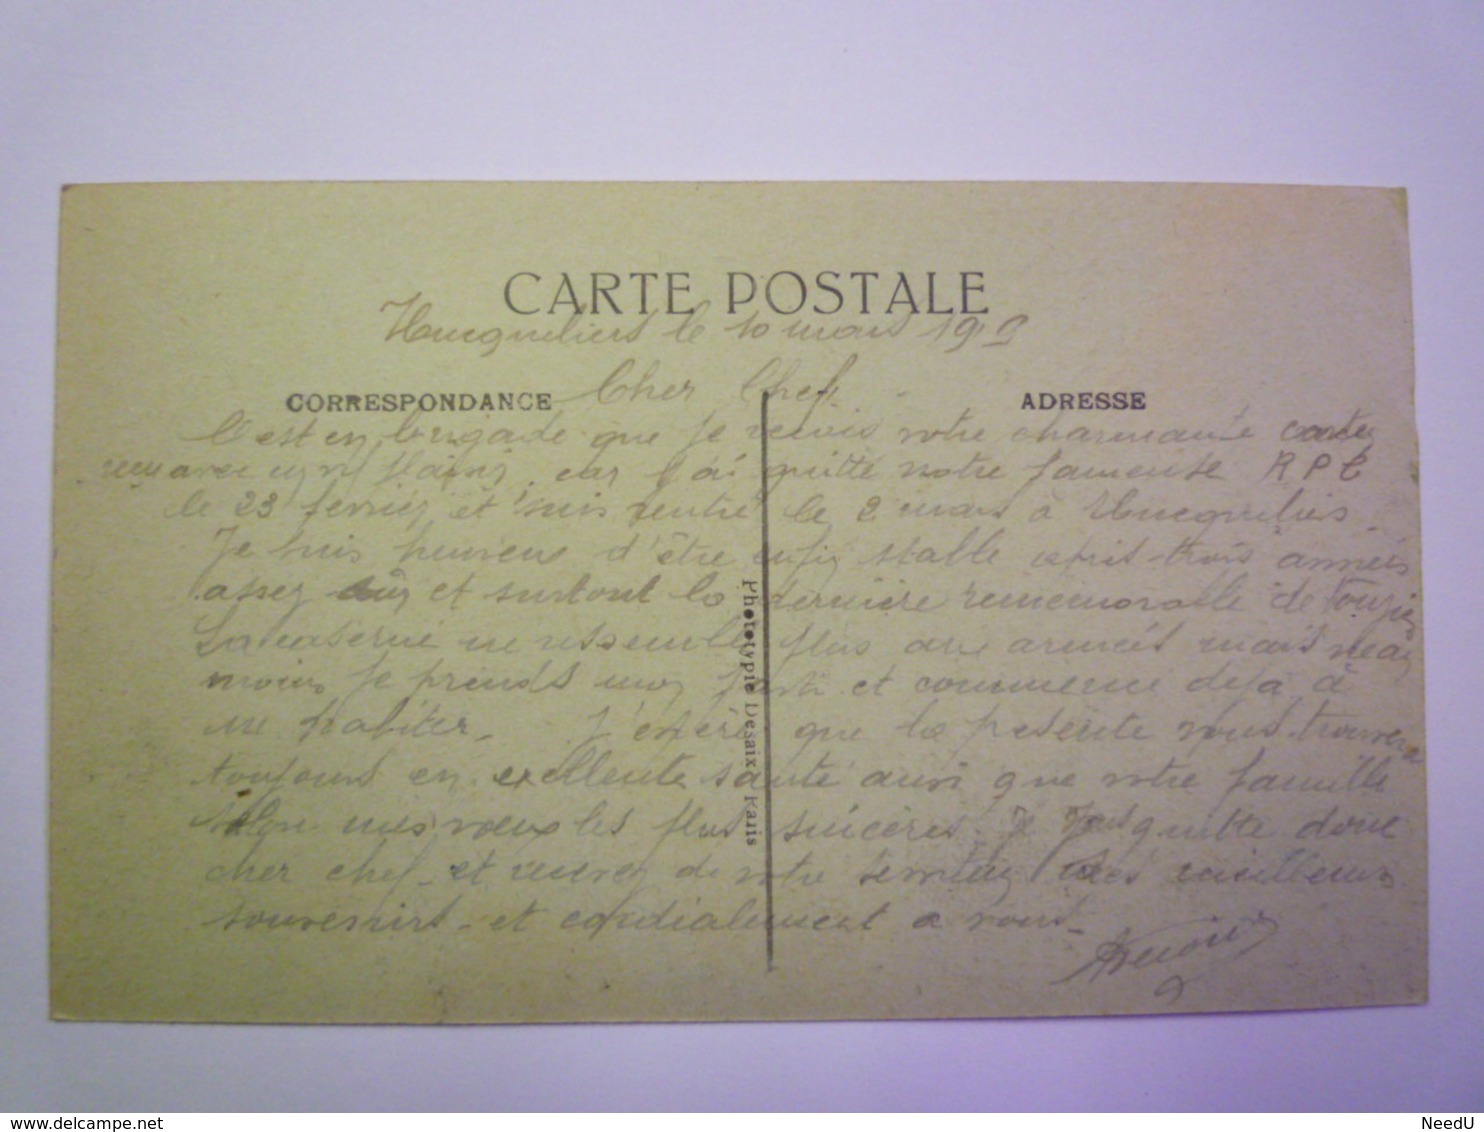 CARTE POSTALE
Hucqueliers le 10 mars 1919
CORRESPONDANCE
Cher Chef
ADRESSE
C'est en brigade que je reçois votre charmante carte
car j'ai quitté notre fameuse R P C
le 23 février et suis rentré le 2 mars à Hucqueliers
Je suis heureux d'être enfin stable après trois années
assez et surtout la dernière remémorable de
La caserne ne ressemble plus aux armées mais nean
moins je prends mon et commence deja à
m'habiter. J'espère que la présente vous trouvera
toujours en excellente santé ainsi que votre famille
selon mes voeux les plus sincères. Je vous quitte donc
cher chef et recevez de votre les meilleurs
souvenirs et cordialement a vous
Phototypie Desaix, Paris
NeedU
www.delcampe.net